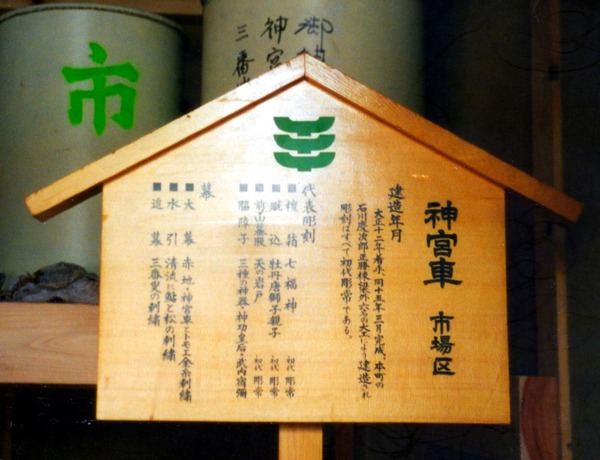 神宮車 市場区
建造年月
大正十二年着手、同十五年三月完成、本町の
石川慶次郎
大工により建造され
彫刻はすべて初代彫常である。
代表彫刻
■壇箱 七福神 初代 彫常
■蹴込 牡丹唐獅子親子 初代 彫常
■前山蟇股 天の岩戸 初代 彫常
■脇障子 三種の神器・神功皇后・武内宿彌
幕
■大幕 赤地・神宮車とトモエ金糸刺繍
■水引 清流に鮎と松の刺繍
■追幕 三番叟の刺繍
市
神宮
三番